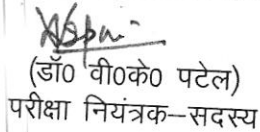 (डॉ0 वी0के0 पटेल)
परीक्षा नियंत्रक–सदस्य